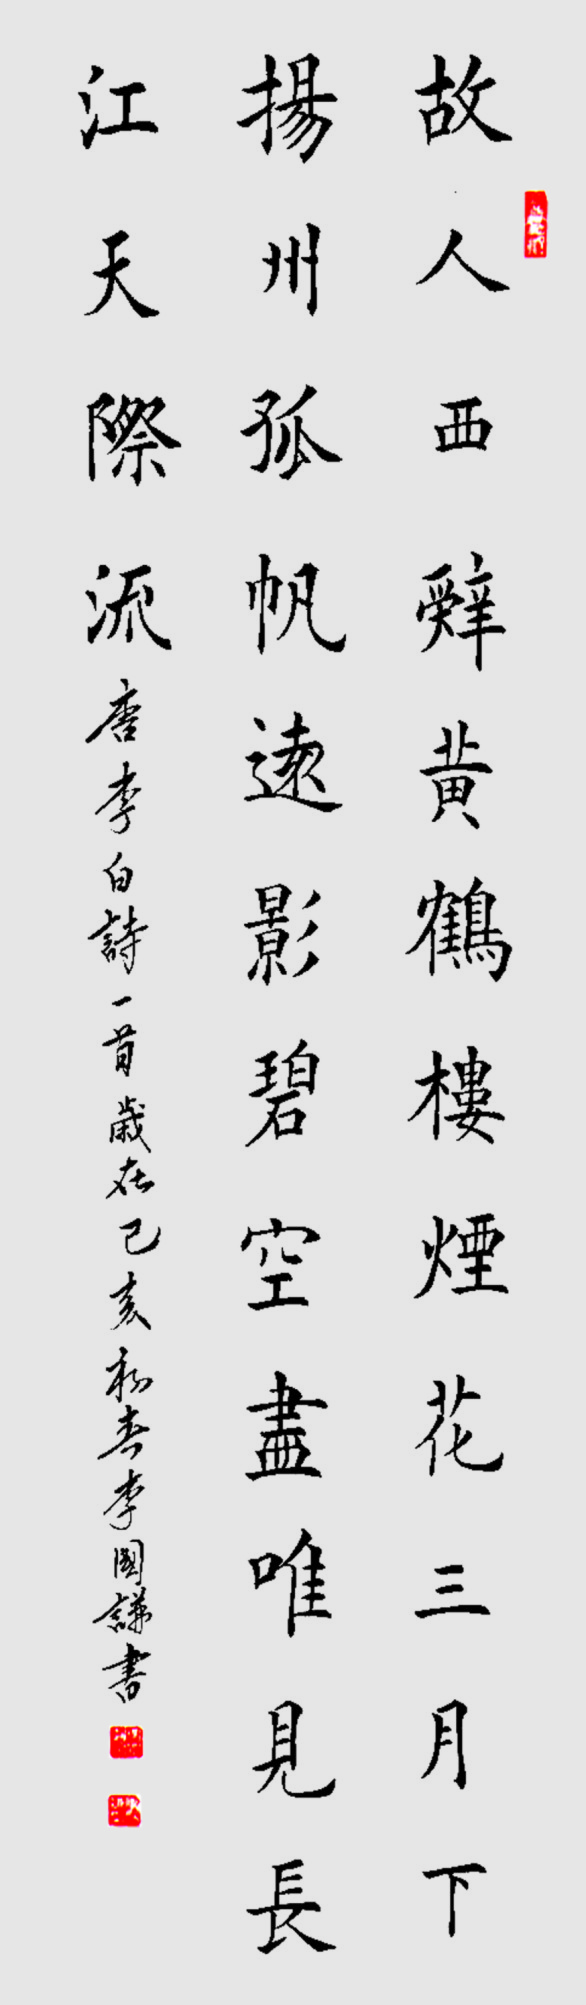 故人西辤黄鶴樓煙花三月下
揚州孤帆遠影碧空盡唯見長
江天際流唐李白詩一首歲在己亥初春李國謙書